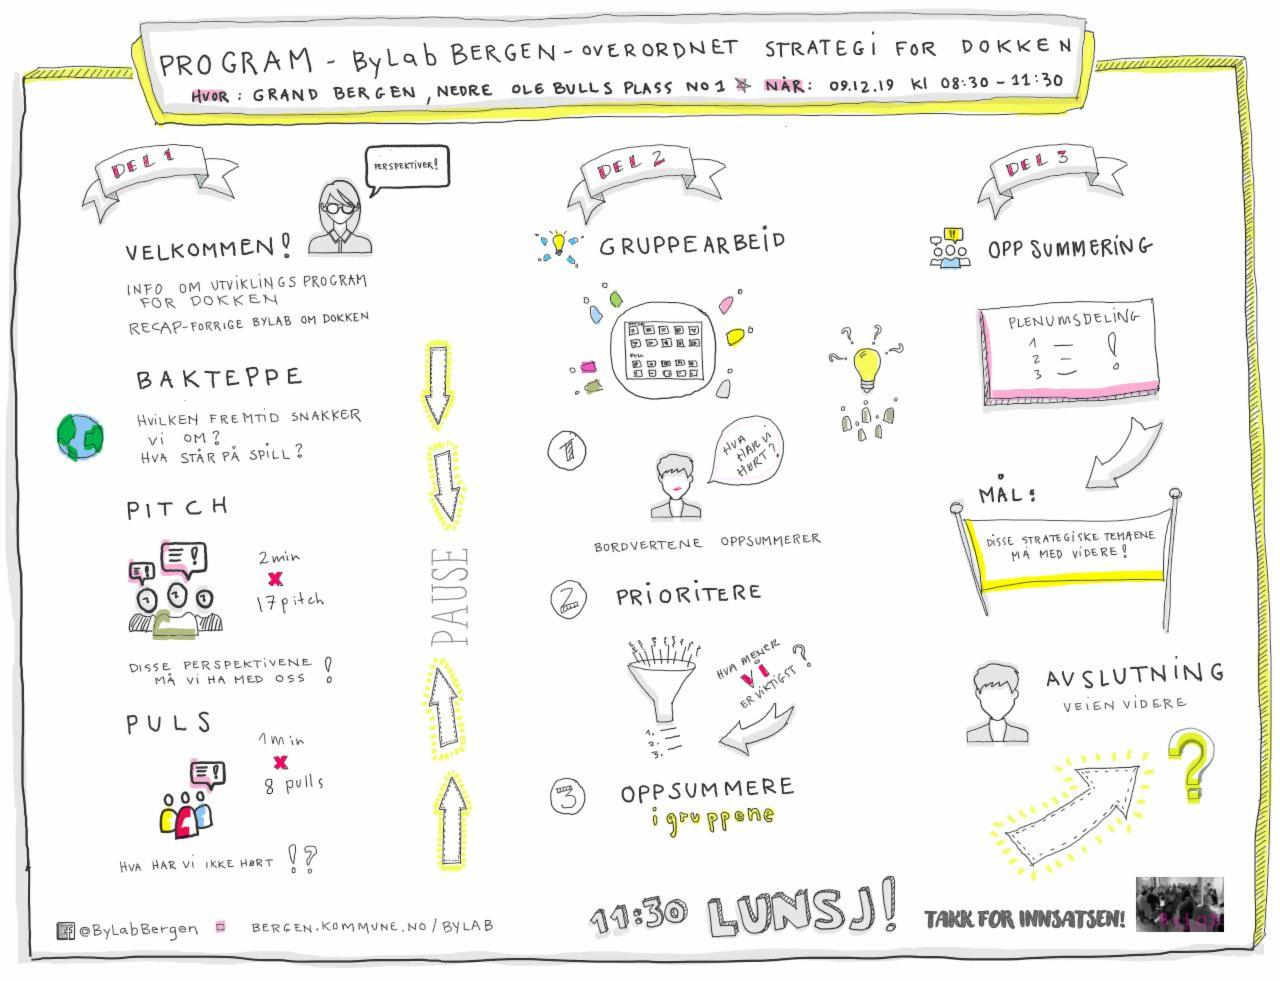 PROGRAM - ByLab BERGEN - OVERORDNET STRATEGI FOR DOKKEN
HVOR: GRAND BERGEN, NEDRE OLE BULLS PLASS NO 1 NÅR: 09.12.19 Kl 08:30 - 11:30
DEL 1
PERSPEKTIVER!
VELKOMMEN!
INFO OM UTVIKLINGS PROGRAM
FOR DOKKEN
RECAP-FORRIGE BYLAB OM DOKKEN
BAKTEPPE
HVILKEN FREMTID SNAKKER
Vi OM?
HVA STÅR PÅ SPILL?
PITCH
2 min
x
17 pitch
DISSE PERSPEKTIVENE
MÅ VI HA MED OSS !
PULS
1 min
x
8 pulls
HVA HAR Vi IKKE HØRT !?
PAUSE
DEL 2
GRUPPEARBEID
1
HVA
HAR Vi
HØRT?
BORDVERTENE OPPSUMMERER
2
PRIORITERE
HVA MENER
Vi
ER VIKTIGST ?
1.
2.
3.
3
OPPSUMMERE
i gruppene
DEL 3
OPPSUMMERING
PLENUMSDELING
1
2
3
!
MÅL:
DISSE STRATEGISKE TEMAENE
MÅ MED VIDERE!
AVSLUTNING
VEIEN VIDERE
?
@ByLabBergen BERGEN.KOMMUNE.NO/BYLAB
11:30 LUNSJ!
TAKK FOR INNSATSEN!
ByLaB